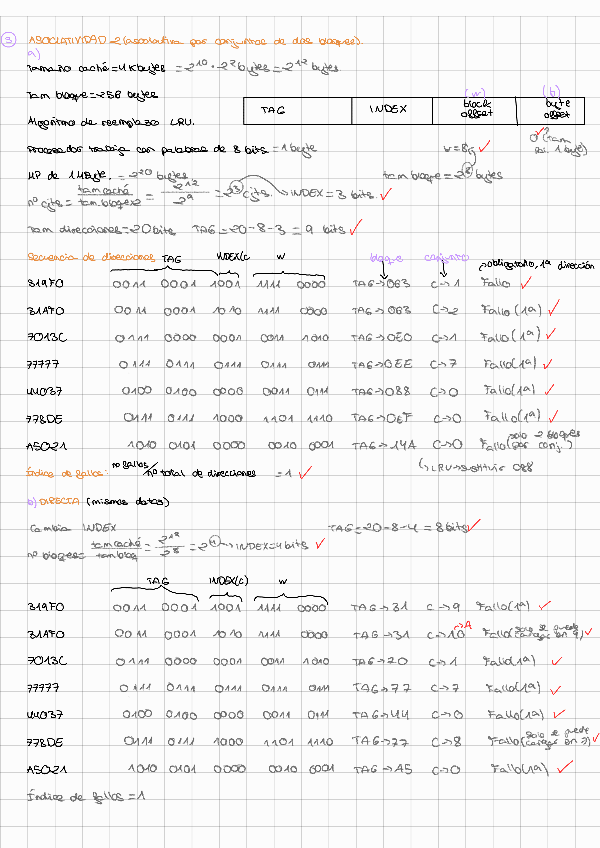 3 ASOCIATIVIDAD-2 (asociativa por conjuntos de dos bloques).
a)
Tamaño caché=4Kbytes = 2^10 · 2^2 bytes = 2^12 bytes.
Tam bloque=256 bytes
(w) (b)
TAG INDEX block offset byte offset
Algoritmo de reemplazo LRU.
Procesador trabaja con palabras de 8 bits = 1 byte
w = 8 ✓ 0 (tam pal. 1 byte)
MP de 1 Mbyte. = 2^20 bytes
tam bloque = 2^8 bytes
nº cjtos = tam caché / tam bloque x2 = 2^12 / 2^9 = 2^3 cjts. → INDEX = 3 bits. ✓
Tam direcciones = 20 bits TAG = 20-8-3 = 9 bits ✓
Secuencia de direcciones TAG INDEX(c) w bloque conjunto → obligatorio, 1ª dirección
319F0 0011 0001 1001 1111 0000 TAG→063 C→1 Fallo ✓
31AF0 0011 0001 1010 1111 0000 TAG→063 C→2 Fallo (1ª) ✓
7013C 0111 0000 0001 0011 1010 TAG→0E0 C→1 Fallo (1ª) ✓
77777 0111 0111 0111 0111 0111 TAG→0EE C→7 Fallo (1ª) ✓
44037 0100 0100 0000 0011 0111 TAG→088 C→0 Fallo (1ª) ✓
778DE 0111 0111 1000 1101 1110 TAG→0EF C→0 Fallo (1ª) ✓
A5021 1010 0101 0000 0010 0001 TAG→14A C→0 Fallo (solo 2 bloques por conj.) ✓
Índice de fallos: nº fallos/nº total de direcciones = 1 ✓ ↳ LRU→sustituir 088
b) DIRECTA (mismos datos)
Cambia INDEX TAG = 20-8-4 = 8 bits ✓
nº bloques = tam caché / tam bloq = 2^12 / 2^8 = 2^4 → INDEX = 4 bits ✓
TAG INDEX(c) w
319F0 0011 0001 1001 1111 0000 TAG→31 C→9 Fallo (1ª) ✓
31AF0 0011 0001 1010 1111 0000 TAG→31 C→10 →A Fallo (solo se puede cargar en 9) ✓
7013C 0111 0000 0001 0011 1010 TAG→70 C→1 Fallo (1ª) ✓
77777 0111 0111 0111 0111 0111 TAG→77 C→7 Fallo (1ª) ✓
44037 0100 0100 0000 0011 0111 TAG→44 C→0 Fallo (1ª) ✓
778DE 0111 0111 1000 1101 1110 TAG→77 C→8 Fallo (solo se puede cargar en 7) ✓
A5021 1010 0101 0000 0010 0001 TAG→A5 C→0 Fallo (1ª) ✓
Índice de fallos = 1